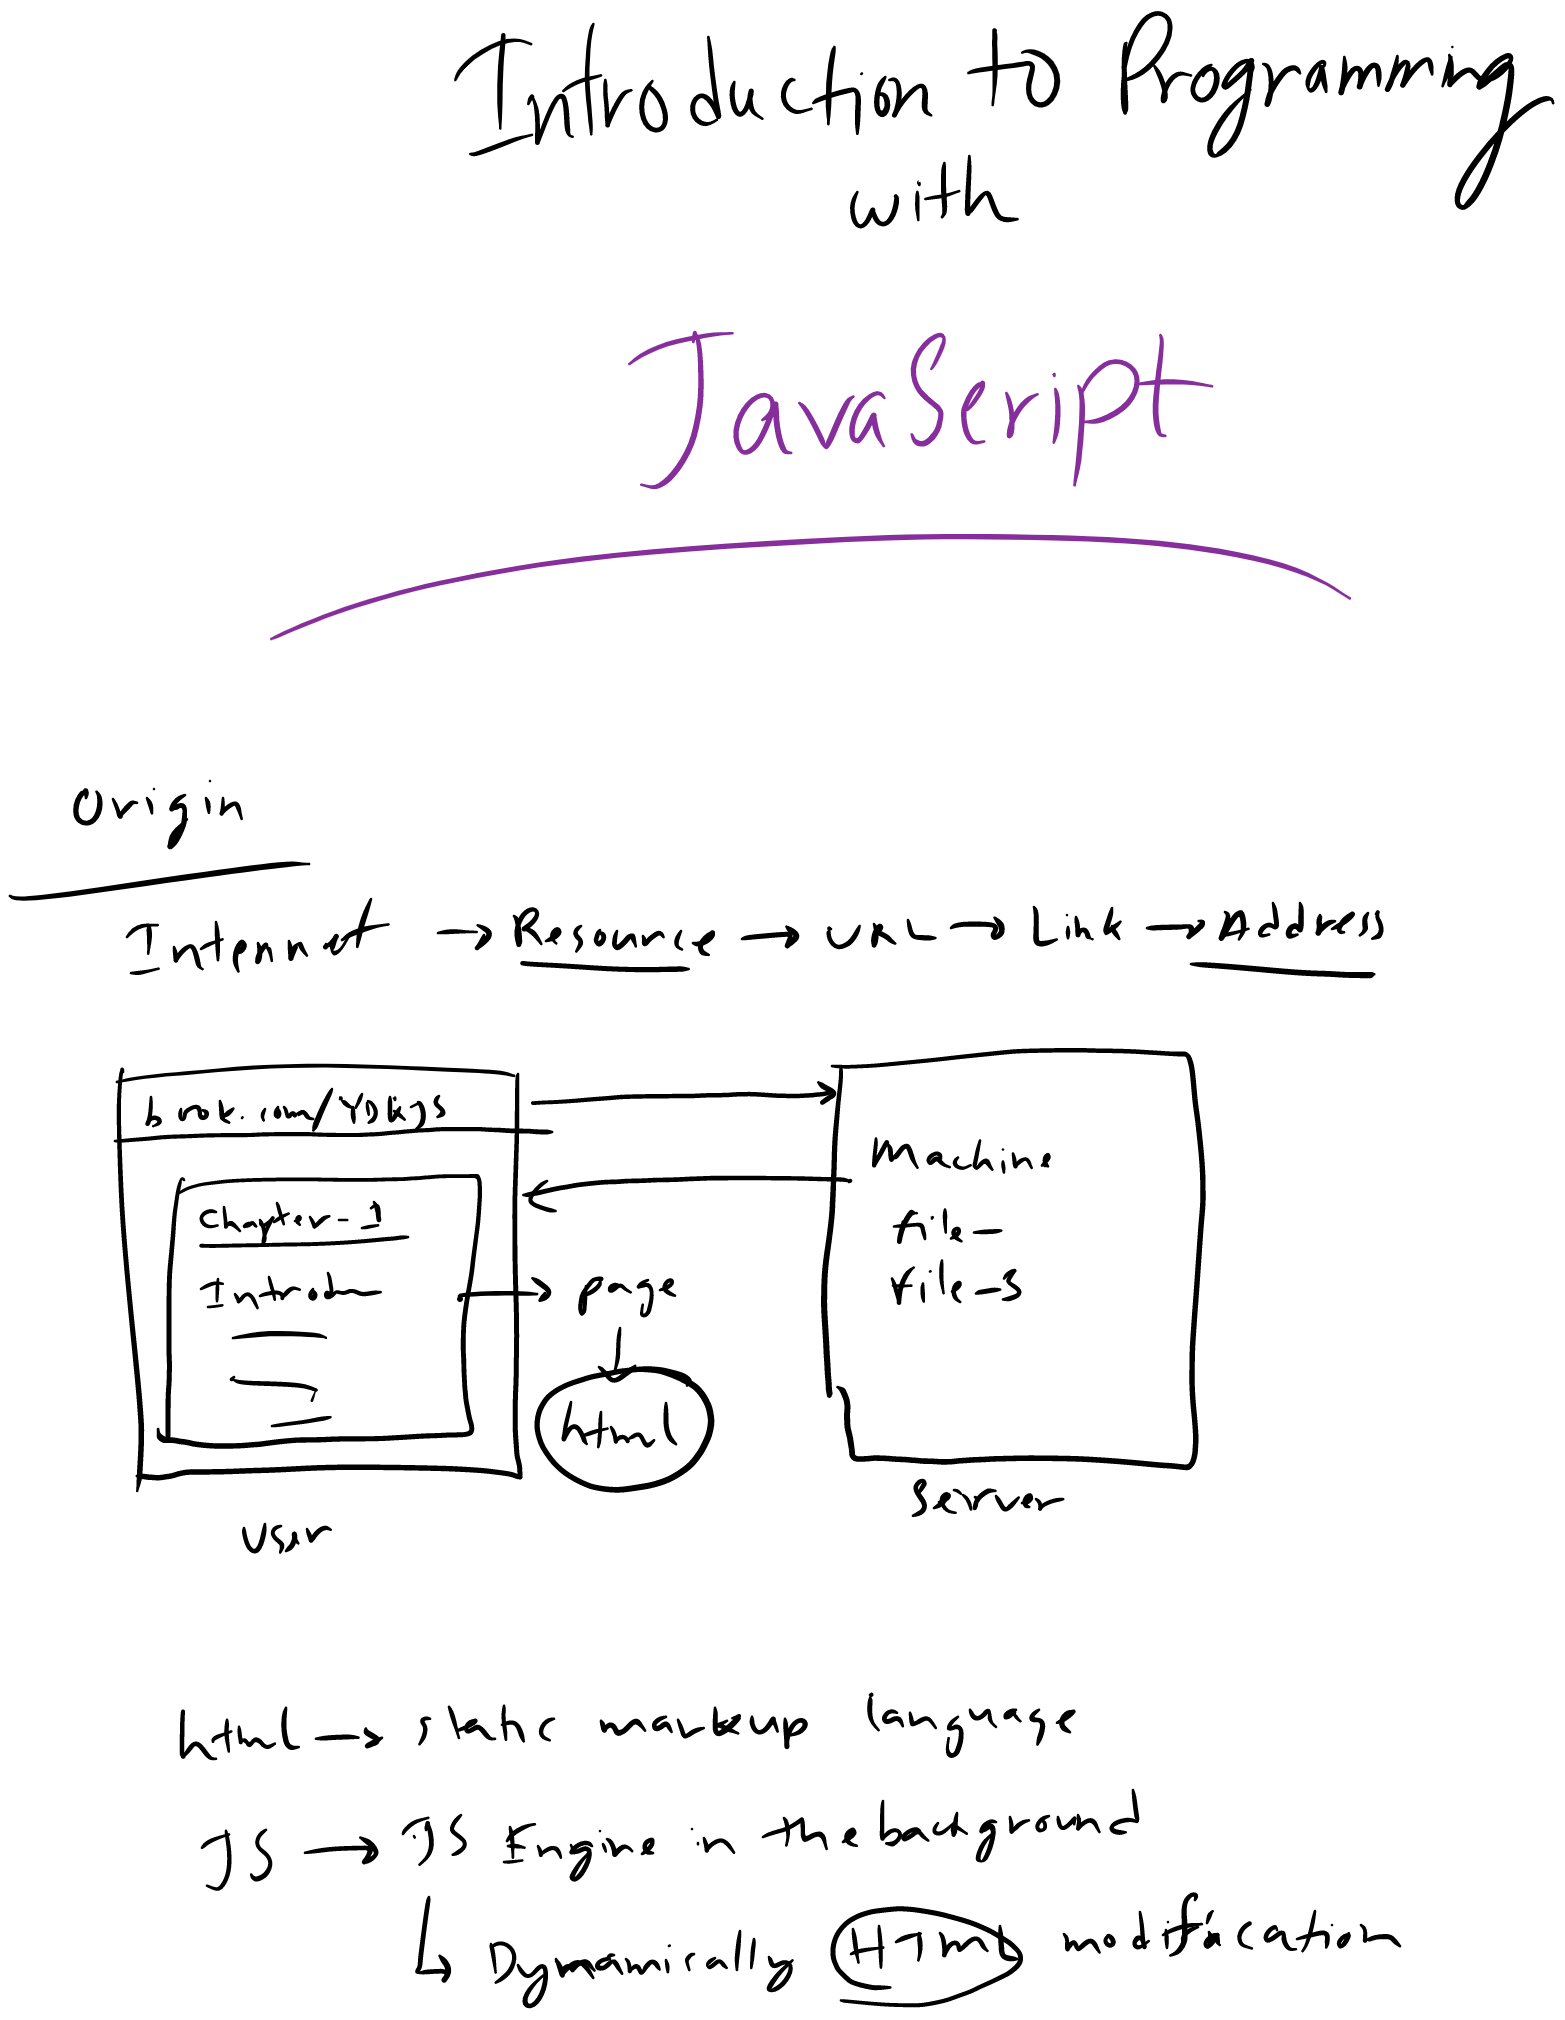 Introduction to Programming
with
JavaScript
Origin
Internet → Resource → URL → Link → Address
book.com/YDKJS
Chapter-1
Introdu
page
html
User
Machine
file-
file-3
Server
html → static markup language
JS → JS Engine in the background
↳ Dynamically HTML modification